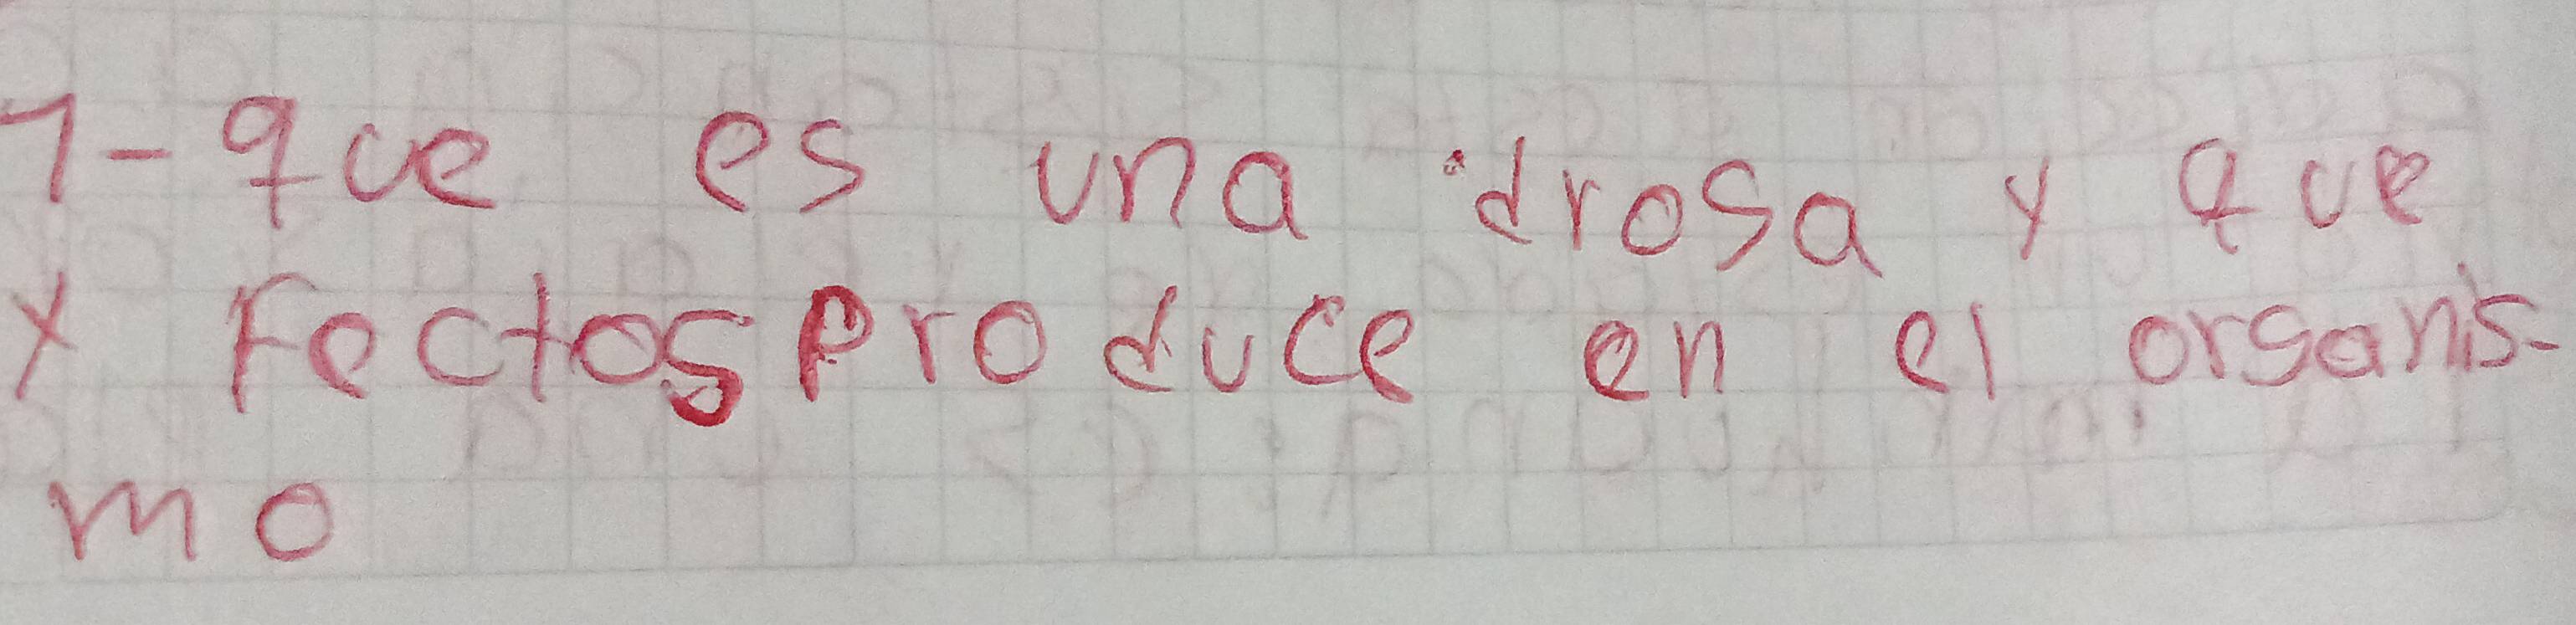 1-que es una droga y que
y Fectos produce en el organis-
mo